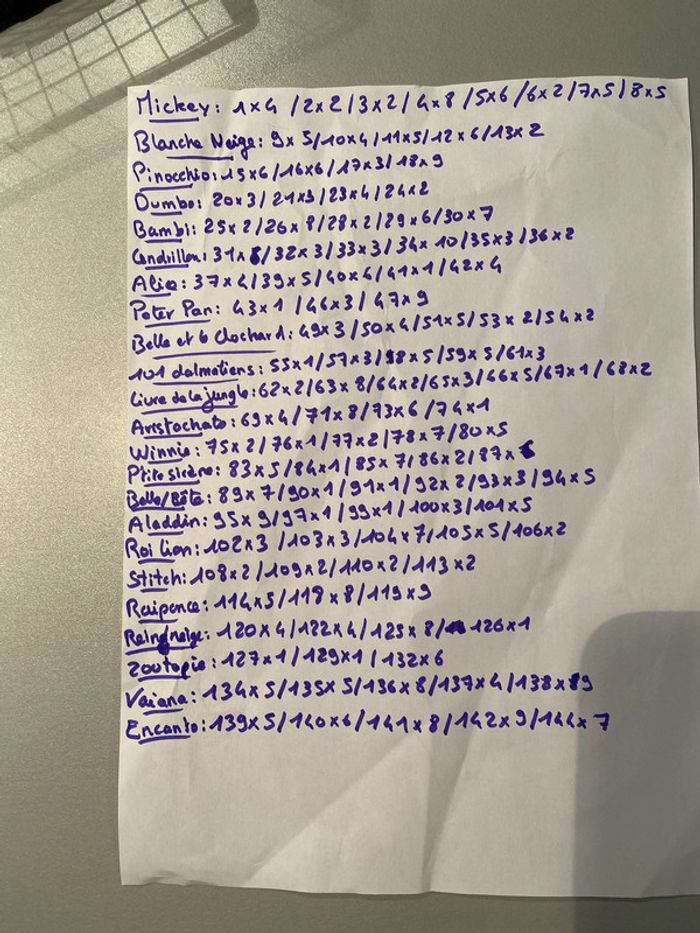 Mickey: 1x4 /2x2/3x2/4x8/5x6/6x2/7x5/8x5
Blanche Neige: 9x5/10x4/11x5/12x6/13x2
Pinocchio: 15x6/16x6/17x3/18x9
Dumbo: 20x3/21x3/23x4/24x2
Bambi: 25x2/26x8/28x2/29x6/30x7
Cendrillon: 31x /32x3/33x3/34x10/35x3/36x2
Alice: 37x4/39x5/40x4/41x1/42x4
Peter Pan: 43x1/46x3/47x9
Belle et le Clochard: 49x3/50x4/51x5/53x2/54x2
101 dalmatiens: 55x1/57x3/58x5/59x5/61x3
Livre de la jungle: 62x2/63x8/64x2/65x3/66x5/67x1/68x2
Aristochats: 69x4/71x8/73x6/74x1
Winnie: 75x2/76x1/77x2/78x7/80x5
Ptite sirène: 83x5/84x1/85x7/86x2/87x6
Belle/Bête: 89x7/90x1/91x1/92x2/93x3/94x5
Aladdin: 95x9/97x1/99x1/100x3/101x5
Roi Lion: 102x3/103x3/104x7/105x5/106x2
Stitch: 108x2/109x2/110x2/113x2
Raiponce: 114x5/118x8/119x9
Reine neige: 120x4/122x4/125x8/126x1
Zootopie: 127x1/129x1/132x6
Vaiana: 134x5/135x5/136x8/137x4/138x9
Encanto: 139x5/140x6/141x8/142x9/144x7